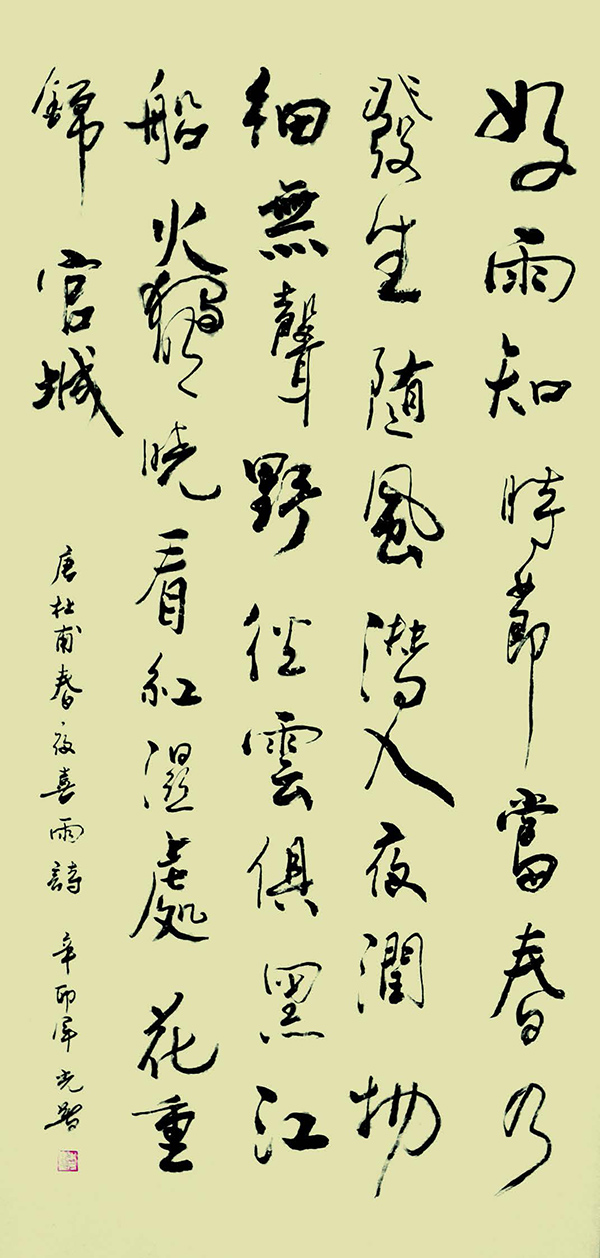 好雨知時節當春乃
發生隨風潛入夜潤物
細無聲野徑雲俱黑江
船火獨明曉看紅濕處花重
錦官城
唐杜甫春夜喜雨詩 辛卯年光智